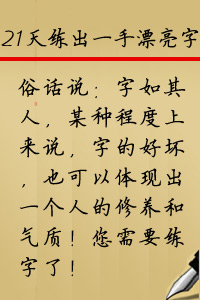 21天练出一手漂亮字
俗话说：字如其
人，某种程度上
来说，字的好坏
，也可以体现出
一个人的修养和
气质！您需要练
字了！